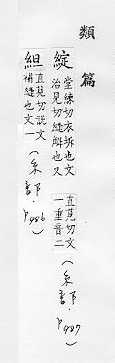 類篇
綻 堂練切衣坼也又治見切縫解也又直莧切文一重音二（糸部，p487）
䋎 直莧切說文補縫也文一（糸部，p486）